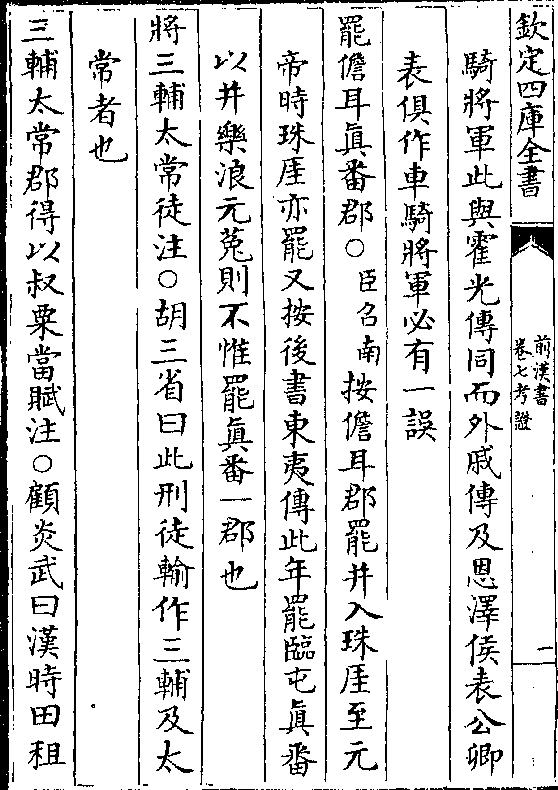 欽定四庫全書
前漢書
卷七考證
二
騎將軍此與霍光傳同而外戚傳及恩澤侯表公卿
表俱作車騎將軍必有一誤
罷儋耳真番郡○臣召南按儋耳郡罷并入珠厓至元
帝時珠厓亦罷又按後書東夷傳此年罷臨屯真番
以并樂浪元菟則不惟罷真番一郡也
將三輔太常徒注○胡三省曰此刑徒輸作三輔及太
常者也
三輔太常郡得以叔粟當賦注○顧炎武曰漢時田租